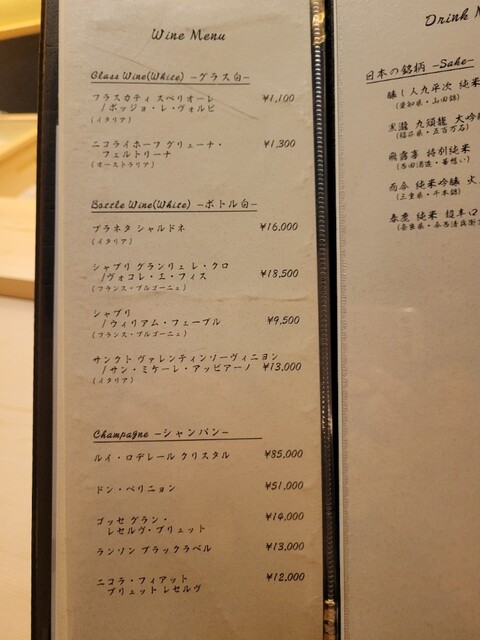 Wine Menu
Glass Wine(White) -グラス白-
フラスカティ スペリオーレ
/ポッジョ・レ・ヴォルピ ¥1,100
(イタリア)
ニコライホーフ グリューナ・
フェルトリーナ ¥1,300
(オーストラリア)
Bottle Wine(White) -ボトル白-
プラネタ シャルドネ ¥16,000
(イタリア)
シャブリ グランリュ レ・クロ
/ヴォコレ・エ・フィス ¥18,500
(フランス・ブルゴーニュ)
シャブリ
/ウィリアム・フェーブル ¥9,500
(フランス・ブルゴーニュ)
サンクト ヴァレンティンソーヴィニヨン
/サン・ミケーレ・アッピアーノ ¥13,000
(イタリア)
Champagne -シャンパン-
ルイ・ロデレール クリスタル ¥85,000
ドン・ペリニョン ¥51,000
ゴッセ グラン・
レセルヴ・ブリュット ¥14,000
ランソン ブラックラベル ¥13,000
ニコラ・フィアット
ブリュット レセルヴ ¥12,000
Drink M
日本の銘柄 -Sake-
醸し人九平次 純米
(愛知県・山田錦)
黒龍 九頭龍 大吟
(福井県・五百万石)
飛露喜 特別純米
而今 純米吟醸 火
(三重県・千本錦)
春鹿 純米 超辛口